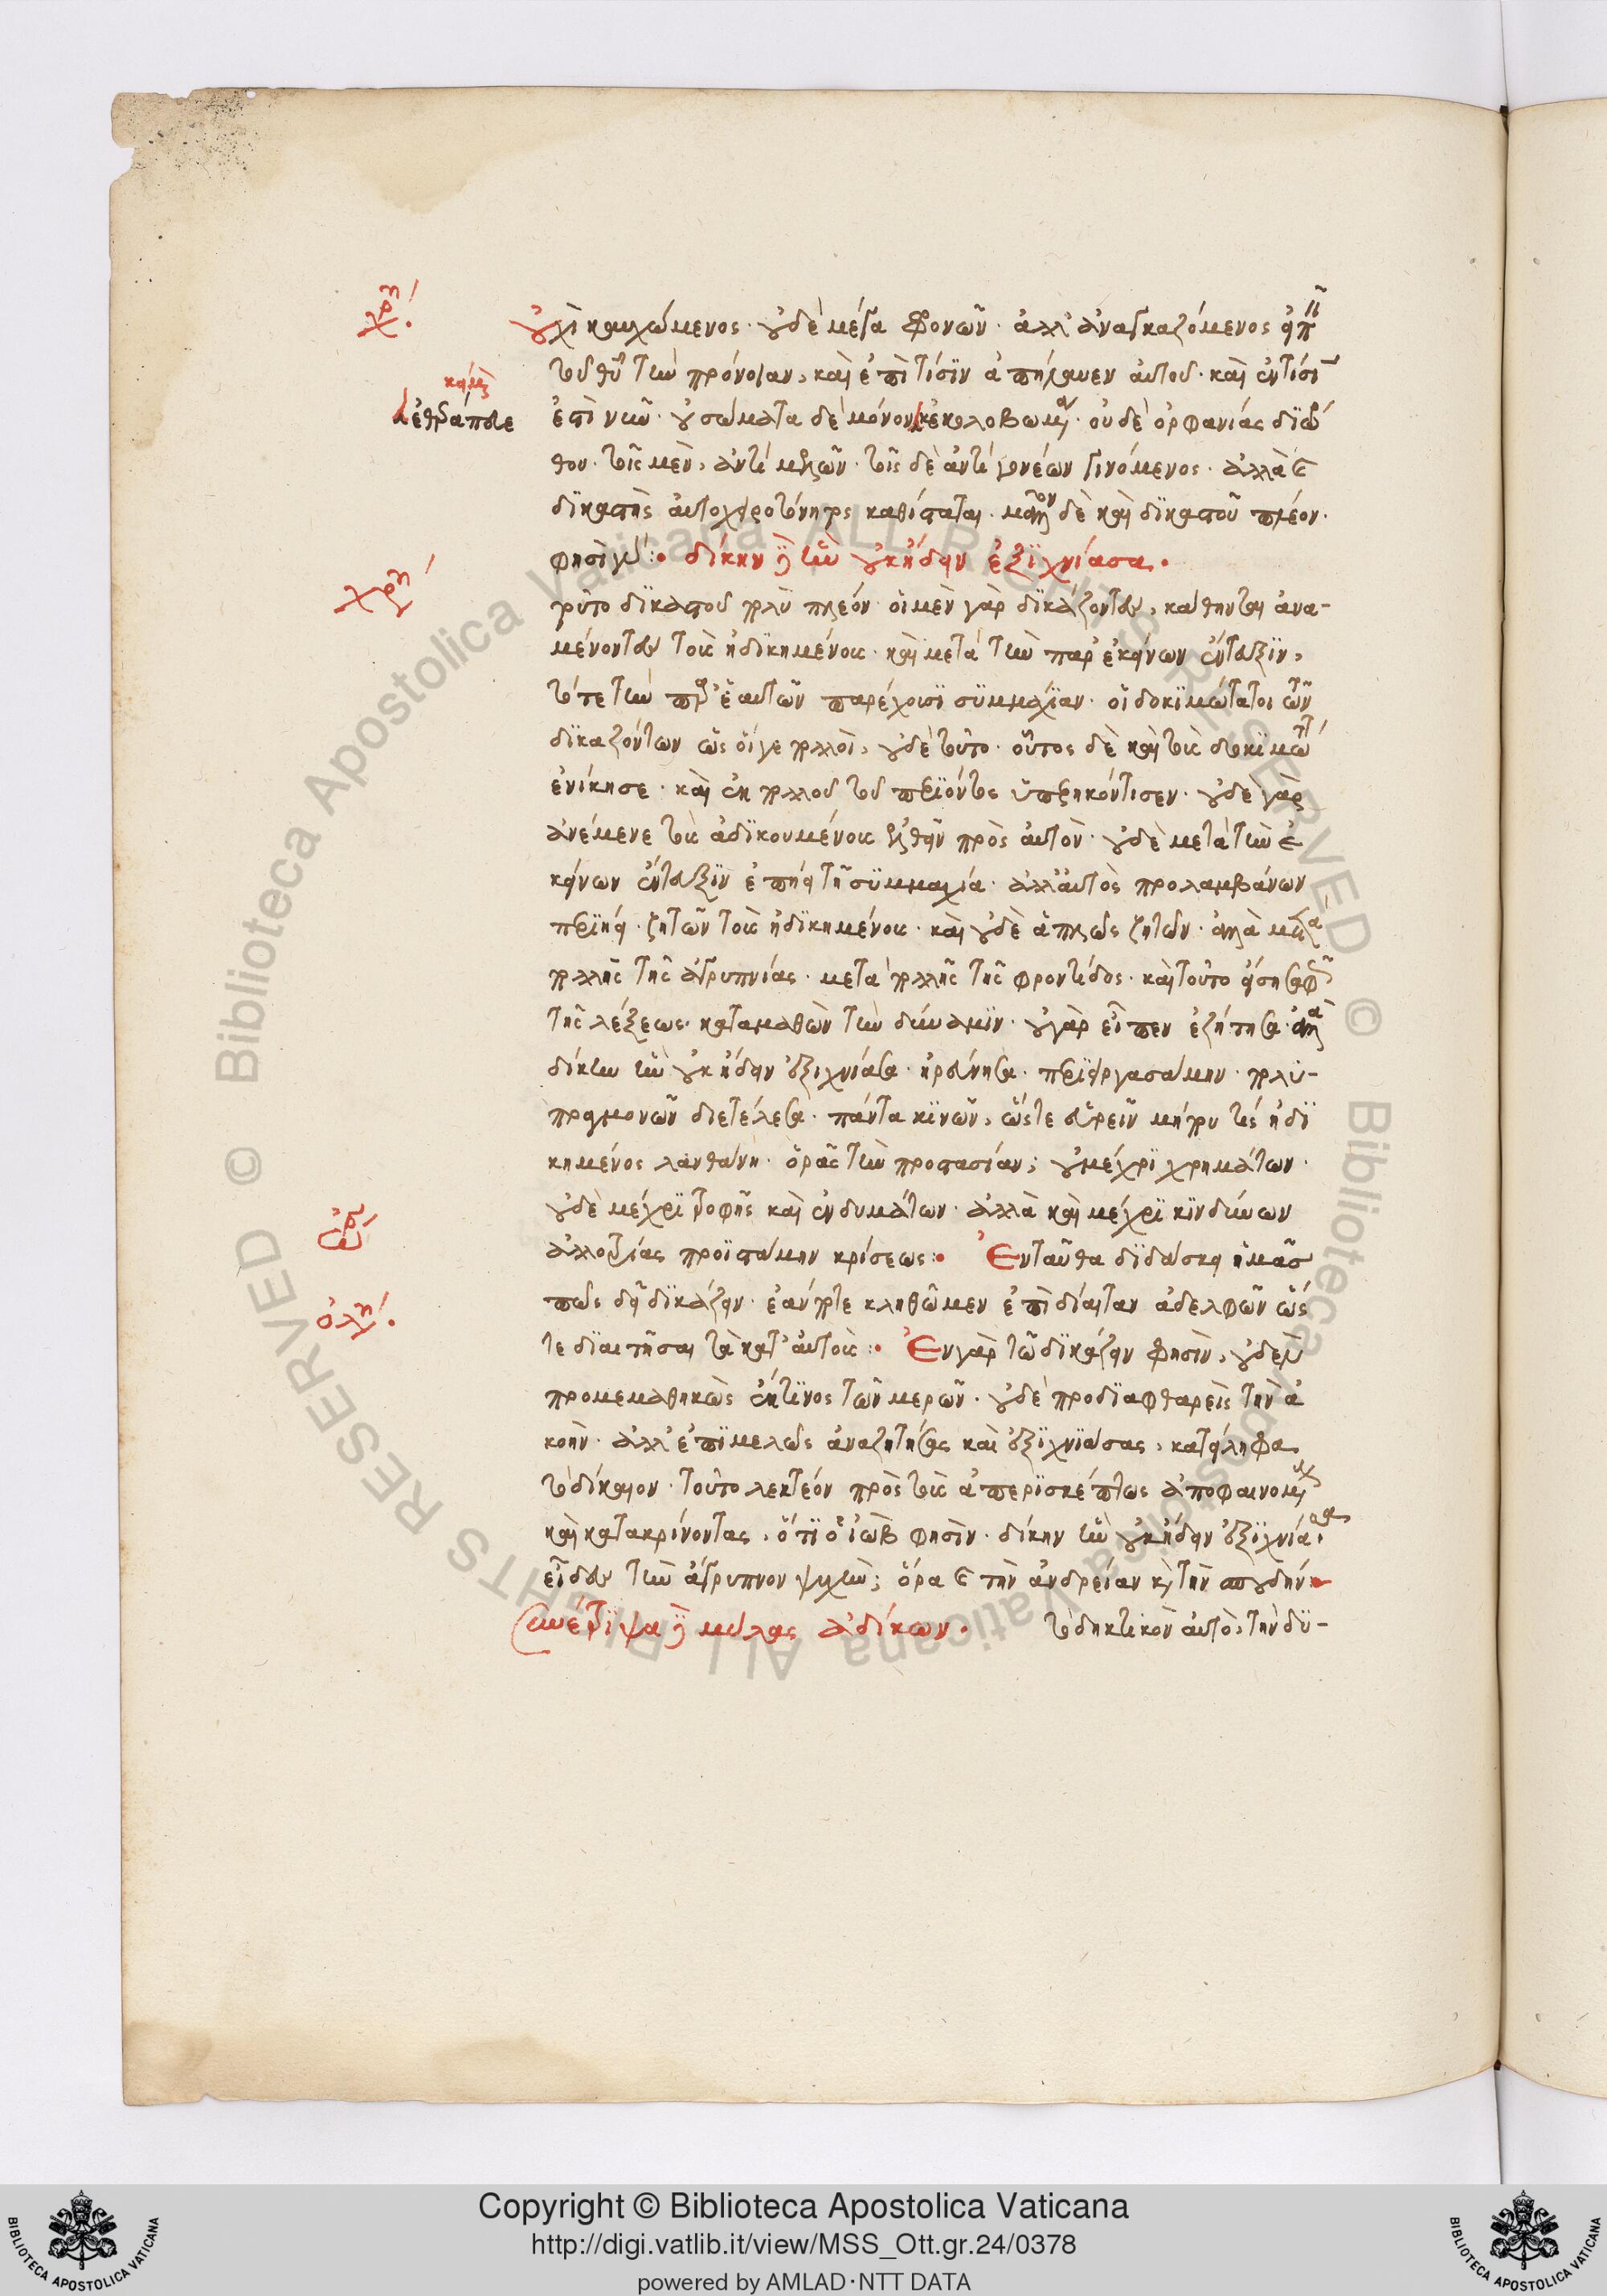 χρ
οὐχὶ καυχώμενος· οὐδὲ μέγα φρονῶν· ἀλλ' ἀναγκαζόμενος εἰπεῖν
τοῦ θυ τὴν πρόνοιαν, καὶ ἐπὶ τίσιν ἀπήλαυεν αὐτοῦ· καὶ ἐν τίσιν
ἐθεράπευε
ἐπὶ νῶν· οὐ σώματα δὲ μόνον κεκολοβωμένα· οὐδὲ ὀρφανίας διώρ
θου· τοῖς μὲν, ἀντὶ μελῶν· τοῖς δὲ ἀντὶ γονέων γινόμενος· ἀλλὰ καὶ
δικαστὴς αὐτοχειροτόνητος καθίσταται· μᾶλλον δὲ καὶ δικαστοῦ πλέον·
φησὶ γάρ: δίκην δὲ ἣν οὐκ ᾔδειν ἐξιχνίασα·
χρ
τοῦτο δικαστοῦ πολὺ πλέον· οἱ μὲν γὰρ δικάζοντες, κάθηνται ἀνα-
μένοντες τοὺς ἠδικημένους· καὶ μετὰ τὴν παρ' ἐκείνων ἔντευξιν,
τότε τὴν παρ' ἑαυτῶν παρέχουσι συμμαχίαν· οἱ δοκιμώτατοι τῶν
δικαζόντων ὡς οἵ γε πολλοὶ, οὐδὲ τοῦτο· οὗτος δὲ καὶ τοὺς δοκιμωτ
ἐνίκησε· καὶ ἐκ πολλοῦ τοῦ περιόντος ὑπερηκόντισεν· οὐδὲ γὰρ
ἀνέμενε τοὺς ἀδικουμένους ἐλθεῖν πρὸς αὐτόν· οὐδὲ μετὰ τὴν ἐ
κείνων ἔντευξιν ἐπῄει τῇ συμμαχία· ἀλλ' αὐτὸς προλαμβάνων
περιῄει· ζητῶν τοὺς ἠδικημένους· καὶ οὐδὲ ἁπλῶς ζητῶν· ἀλλὰ μετὰ
πολλῆς τῆς ἀγρυπνίας· μετὰ πολλῆς τῆς φροντίδος· καὶ τοῦτο εἴσῃ σαφῶς
τῆς λέξεως καταμαθὼν τὴν δύναμιν· οὐ γὰρ εἶπεν ἐζήτησα· ἀλλὰ
δίκην ἣν οὐκ ᾔδειν ἐξιχνίασα· ἠρεύνησα· περιειργασάμην· πολυ-
πραγμονῶν διετέλεσα· πάντα κινῶν, ὥστε εὑρεῖν μήπου τίς ἠδι
κημένος λανθάνῃ· ὁρᾷς τὴν προστασίαν; οὐ μέχρι χρημάτων·
οὐδὲ μέχρι τροφῆς καὶ ἐνδυμάτων· ἀλλὰ καὶ μέχρι κινδύνων
ἀλλοτρίας προϊστάμην κρίσεως: Ἐνταῦθα διδάσκει ἡμᾶς
πῶς δεῖ δικάζειν· ἐάν ποτε κληθῶμεν ἐπὶ δίαιταν ἀδελφῶν ὥς
ὀλυ
τε διαιτῆσαι τὰ κατ' αὐτούς: Ἐν γὰρ τῷ δικάζειν φησὶν, οὐδὲν
προμεμαθηκὼς ἔκ τινος τῶν μερῶν· οὐδὲ προδιαφθαρεὶς τὴν ἀ
κοήν· ἀλλ' ἐπιμελῶς ἀναζητήσας καὶ ἐξιχνιάσας, κατείληφα
τὸ δίκαιον· τοῦτο λεκτέον πρὸς τοὺς ἀπερισκέπτως ἀποφαινομένους
καὶ κατακρίνοντας, ὅτι ὁ ἰὼβ φησίν· δίκην ἣν οὐκ ᾔδειν ἐξιχνίασα·
εἶδες τὴν ἄγρυπνον ψυχήν; ὅρα καὶ τὴν ἀνδρείαν καὶ τὴν σπουδήν
συνέτριψα δὲ μύλας ἀδίκων· τὸ δηκτικὸν αὐτὸ, τὴν δυ-
Copyright © Biblioteca Apostolica Vaticana
http://digi.vatlib.it/view/MSS_Ott.gr.24/0378
powered by AMLAD·NTT DATA
BIBLIOTECA APOSTOLICA VATICANA
BIBLIOTECA APOSTOLICA VATICANA
© Biblioteca Apostolica Vaticana ALL RIGHTS RESERVED © Biblioteca Apostolica Vaticana ALL RIGHTS RESERVED